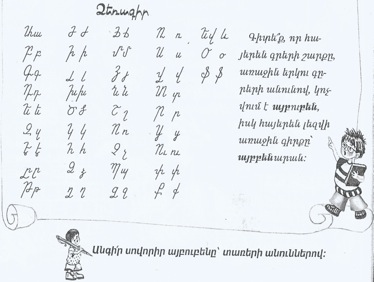 Ձեռագիր
Ա ա Ժ ժ Ճ ճ Ռ ռ Եվ և
Բ բ Ի ի Մ մ Ս ս Օ օ
Գ գ Լ լ Յ յ Վ վ Ֆ ֆ
Դ դ Խ խ Ն ն Տ տ
Ե ե Ծ ծ Շ շ Ր ր
Զ զ Կ կ Ո ո Ց ց
Է է Հ հ Չ չ Ու ու
Ը ը Ձ ձ Պ պ Փ փ
Թ թ Ղ ղ Ջ ջ Ք ք
Գիտե՞ք, որ հա-
յերեն գրերի շարքը,
առաջին երկու գը-
րերի անունով, կոչ-
վում է այբուբեն,
իսկ հայերեն լեզվի
առաջին գիրքը՝
այբբենարան։
Անգի՛ր սովորիր այբուբենը՝ տառերի անուններով։